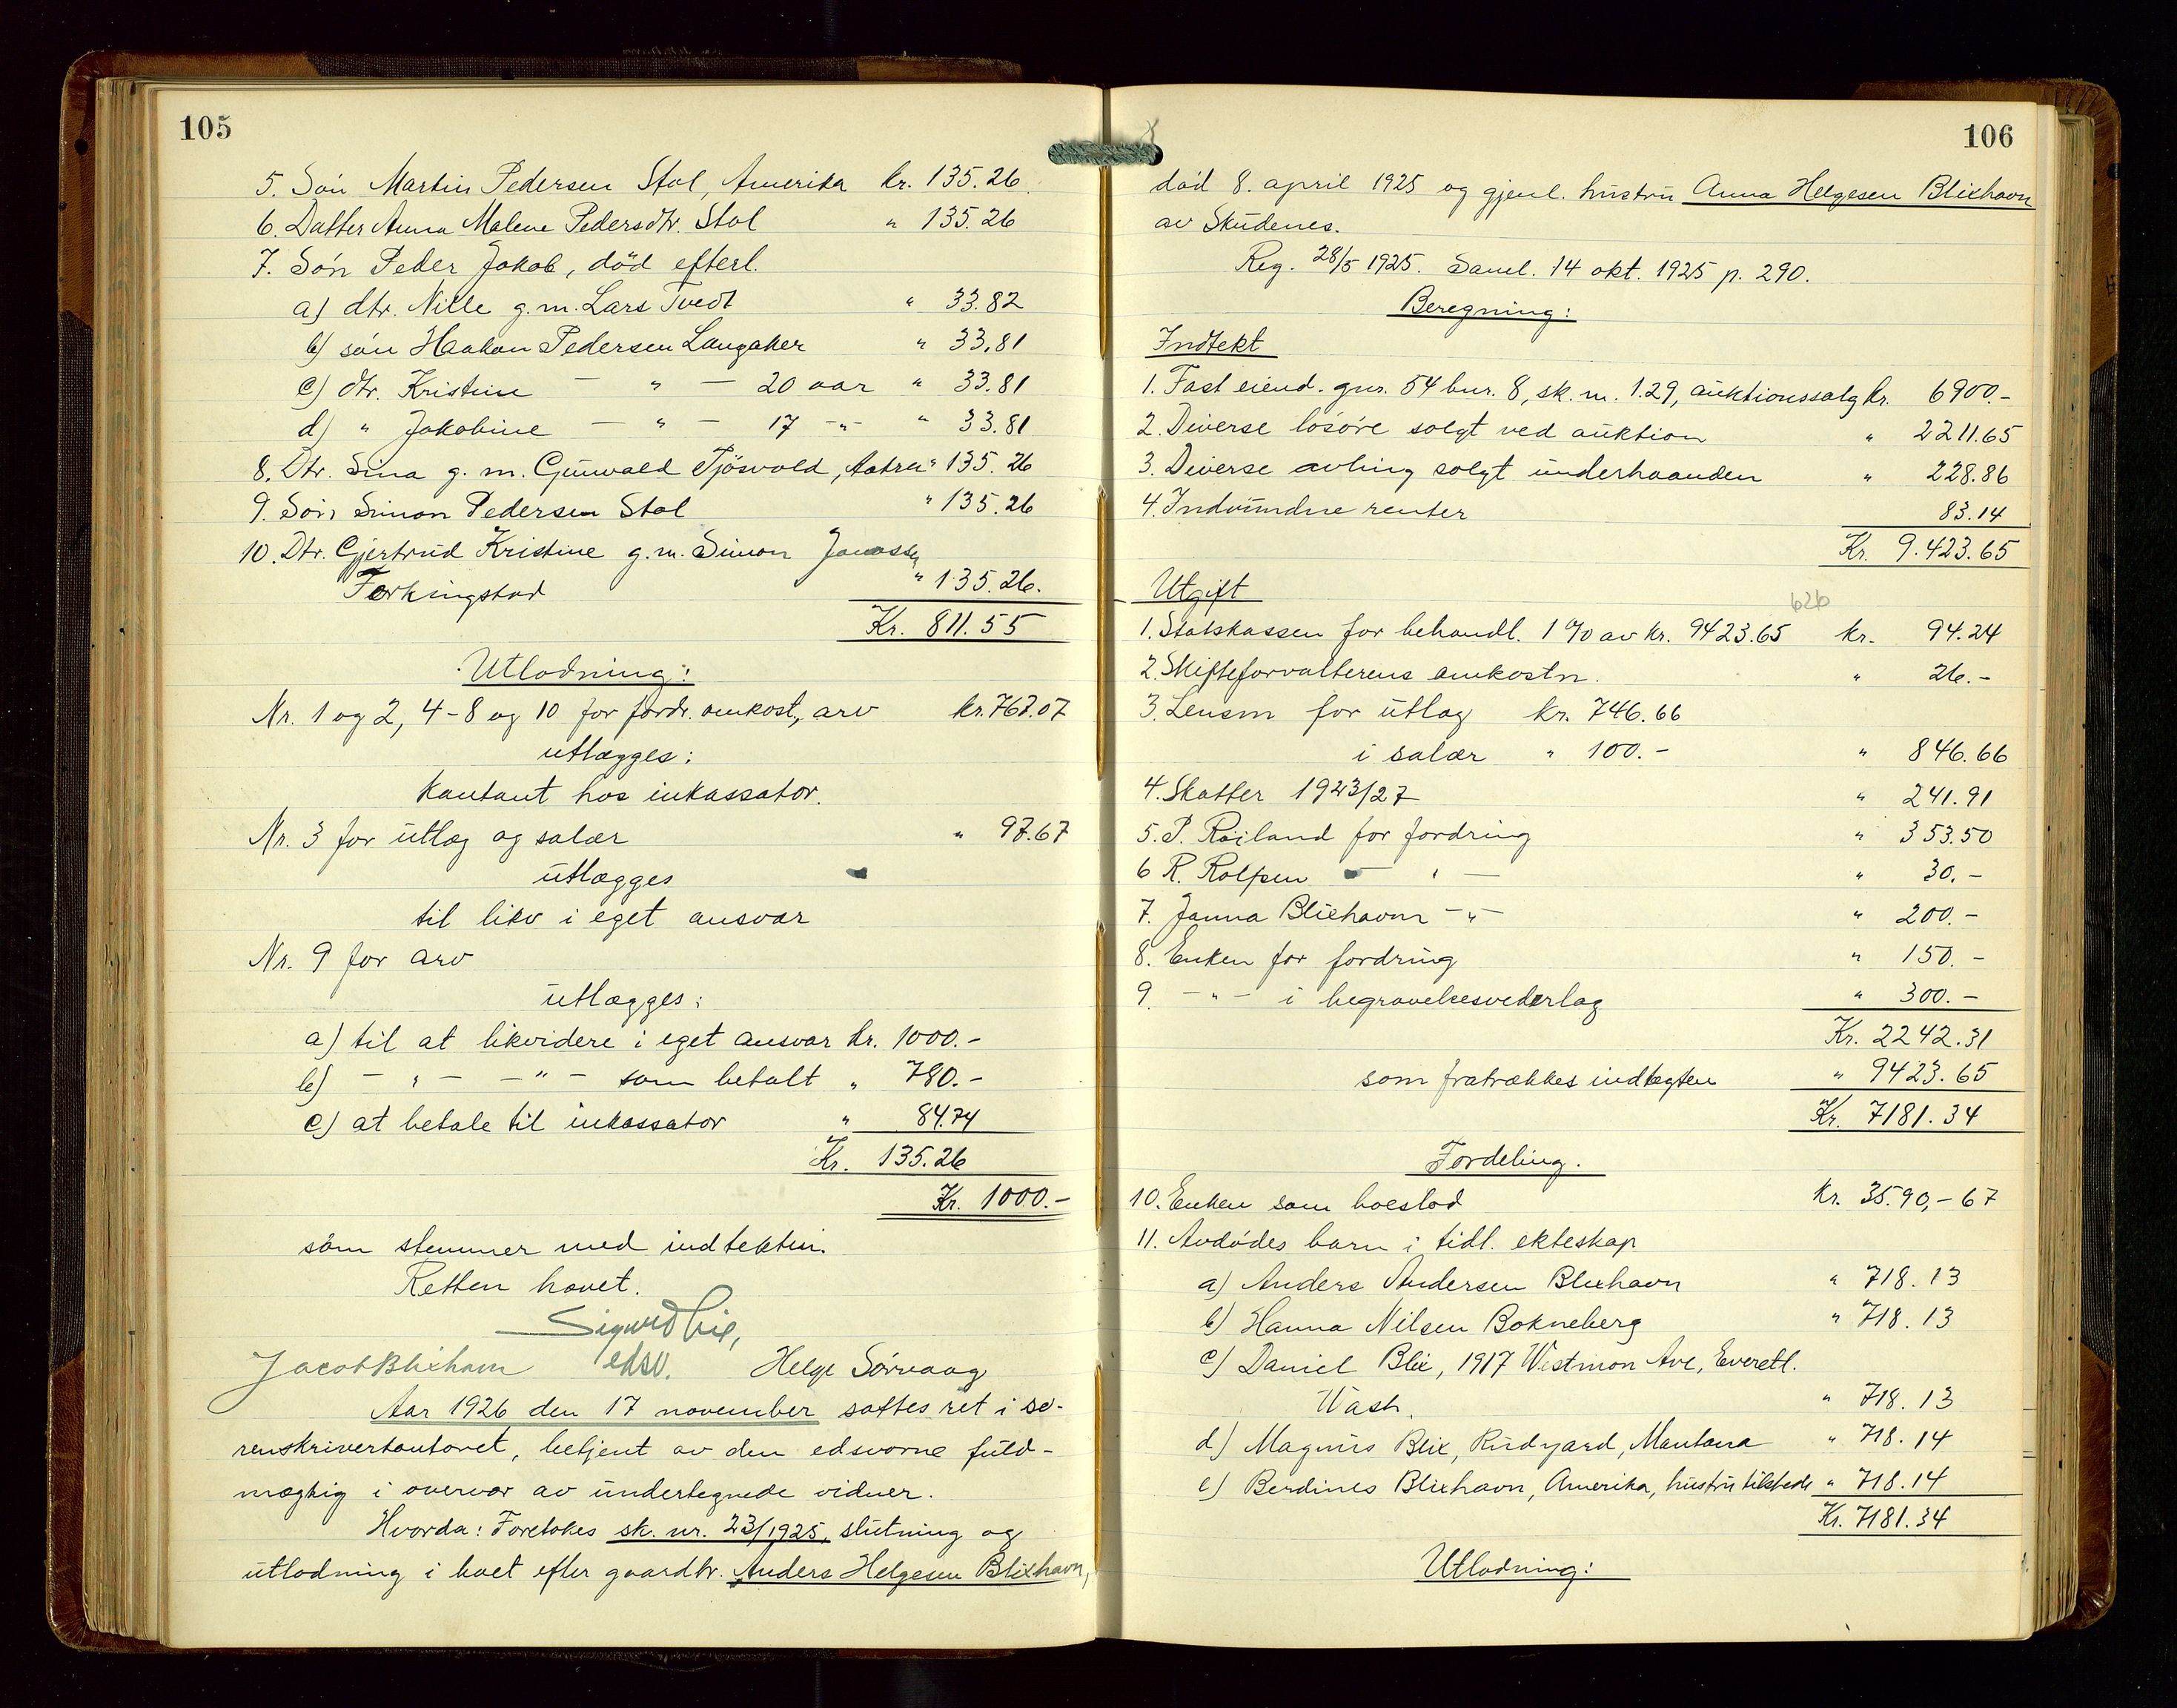 105
5. Søn Martin Pedersen Stol, Amerika kr. 135.26.
6. Datter Anna Malene Pedersdtr. Stol " 135.26
7. Søn Peder Jakob, död efterl.
a) dtr. Nille g.m. Lars Tvedt " 33.82
b) søn Haakon Pedersen Langaker " 33.81
c) dtr. Kristine — " — 20 aar " 33.81
d) " Jakobine — " — 17 -"- " 33.81
8. Dtr. Sina g. m. Gunvald Tjösvold, Aakra " 135.26
9. Søn Simon Pedersen Stol " 135.26
10. Dtr. Gjertrud Kristine g.m. Simon Jonassen
Ferkingstad " 135.26.
Kr. 811.55
Utlodning:
Nr. 1 og 2, 4-8 og 10 for fordr. omkost., arv kr. 767.07
utlægges:
kontant hos inkassator.
Nr. 3 for utlæg og salær " 97.67
utlægges
til likv i eget ansvar
Nr. 9 for arv
utlægges:
a) til at likvidere i eget ansvar kr. 1000.-
b) - " - - " - som betalt " 780.-
c) at betale til inkassator " 84.74
Kr. 135.26
Kr. 1000.-
som stemmer med indtekten.
Retten hævet.
Sigurd Lie,
edsv.
Jacob Blixhavn Helge Sørvaag
Aar 1926 den 17 november sattes ret i so-
renskriverkontoret, betjent av den edsvorne fuld-
mægtig i overvær av undertegnede vidner.
Hvorda: Foretokes sk. nr. 23/1925, slutning og
utlodning i boet efter gaardbr. Anders Helgesen Blixhavn,
106
död 8. april 1925 og gjenl. hustru Anna Helgesen Blixhavn
av Skudenes.
Reg. 28/5 1925. Saml. 14 okt. 1925 p. 290.
Beregning:
Indtekt
1. Fast eiend. gnr. 54 bnr. 8, sk. m. 1.29, auktionssalg kr. 6900.-
2. Diverse løsøre solgt ved auktion " 2211.65
3. Diverse avling solgt underhaanden " 228.86
4. Indvundne renter 83.14
Kr. 9.423.65
Utgift
626
1. Statskassen for behandl. 1 % av kr. 9423.65 kr. 94.24
2. Skifteforvalterens omkostn. " 26.-
3. Lensm for utlæg kr. 746.66
i salær " 100.- " 846.66
4. Skatter 1923/27 " 241.91
5. P. Røiland for fordring " 353.50
6 R. Rolfsen - " - " 30.-
7. Janna Blixhavn -"- " 200.-
8. Enken for fordring " 150.-
9. -"- i begravelsesvederlag " 300.-
Kr. 2242.31
som fratrækkes indtægten " 9423.65
Kr. 7181.34
Fordeling.
10. Enken som boeslod kr. 35.90,-67
11. Avdødes barn i tidl. ekteskap
a) Anders Andersen Blixhavn " 718.13
b) Hanna Nilsen Bokneberg " 718.13
c) Daniel Blix, 1917 Westmon Ave, Everett.
Wash. " 718.13
d) Magnus Blix, Rudyard, Mantana " 718.14
e) Berdines Blixhavn, Amerika, hustru tilstede " 718.14
Kr. 7181.34
Utlodning: